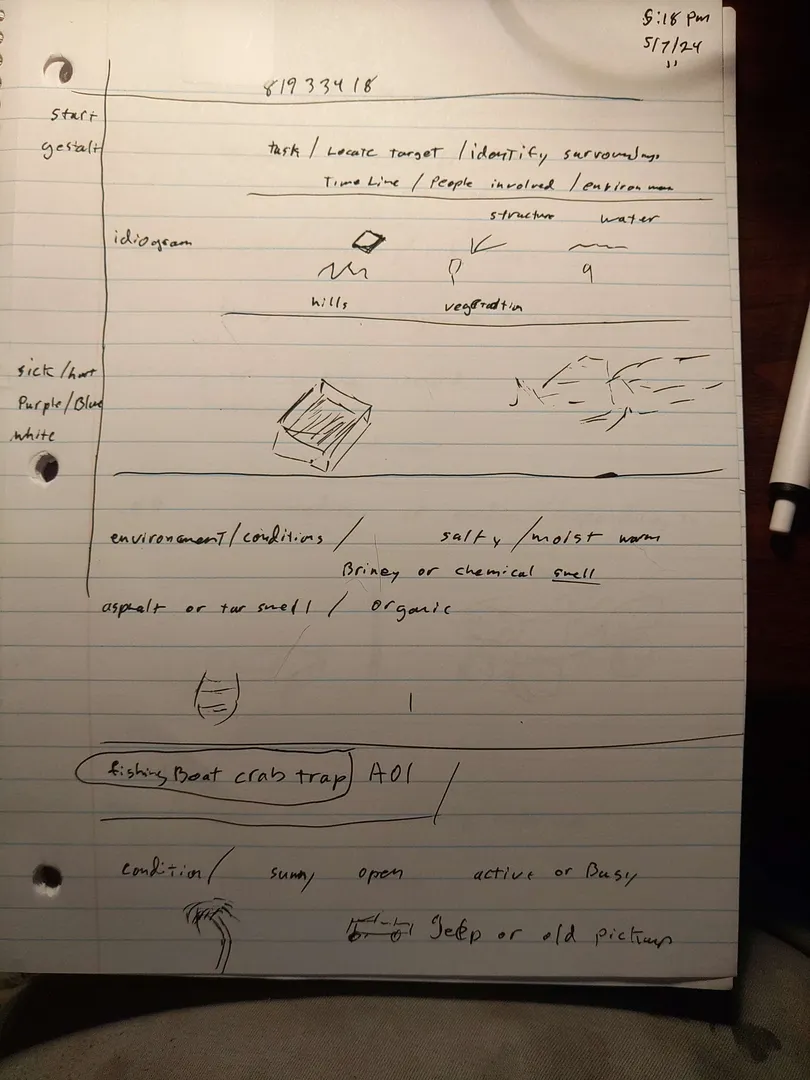 5:18 pm
5/7/24
81933418
start
gestalt
task / Locate target / identify surroundings
Time Line / People involved / environ
structure water
idiogram
hills vegetation
sick / hurt
Purple / Blue
white
environment / conditions / salty / moist warm
Briney or chemical smell
asphalt or tar smell / organic
fishing Boat crab trap AOI /
condition / sunny open active or Busy
Jeep or old pickup